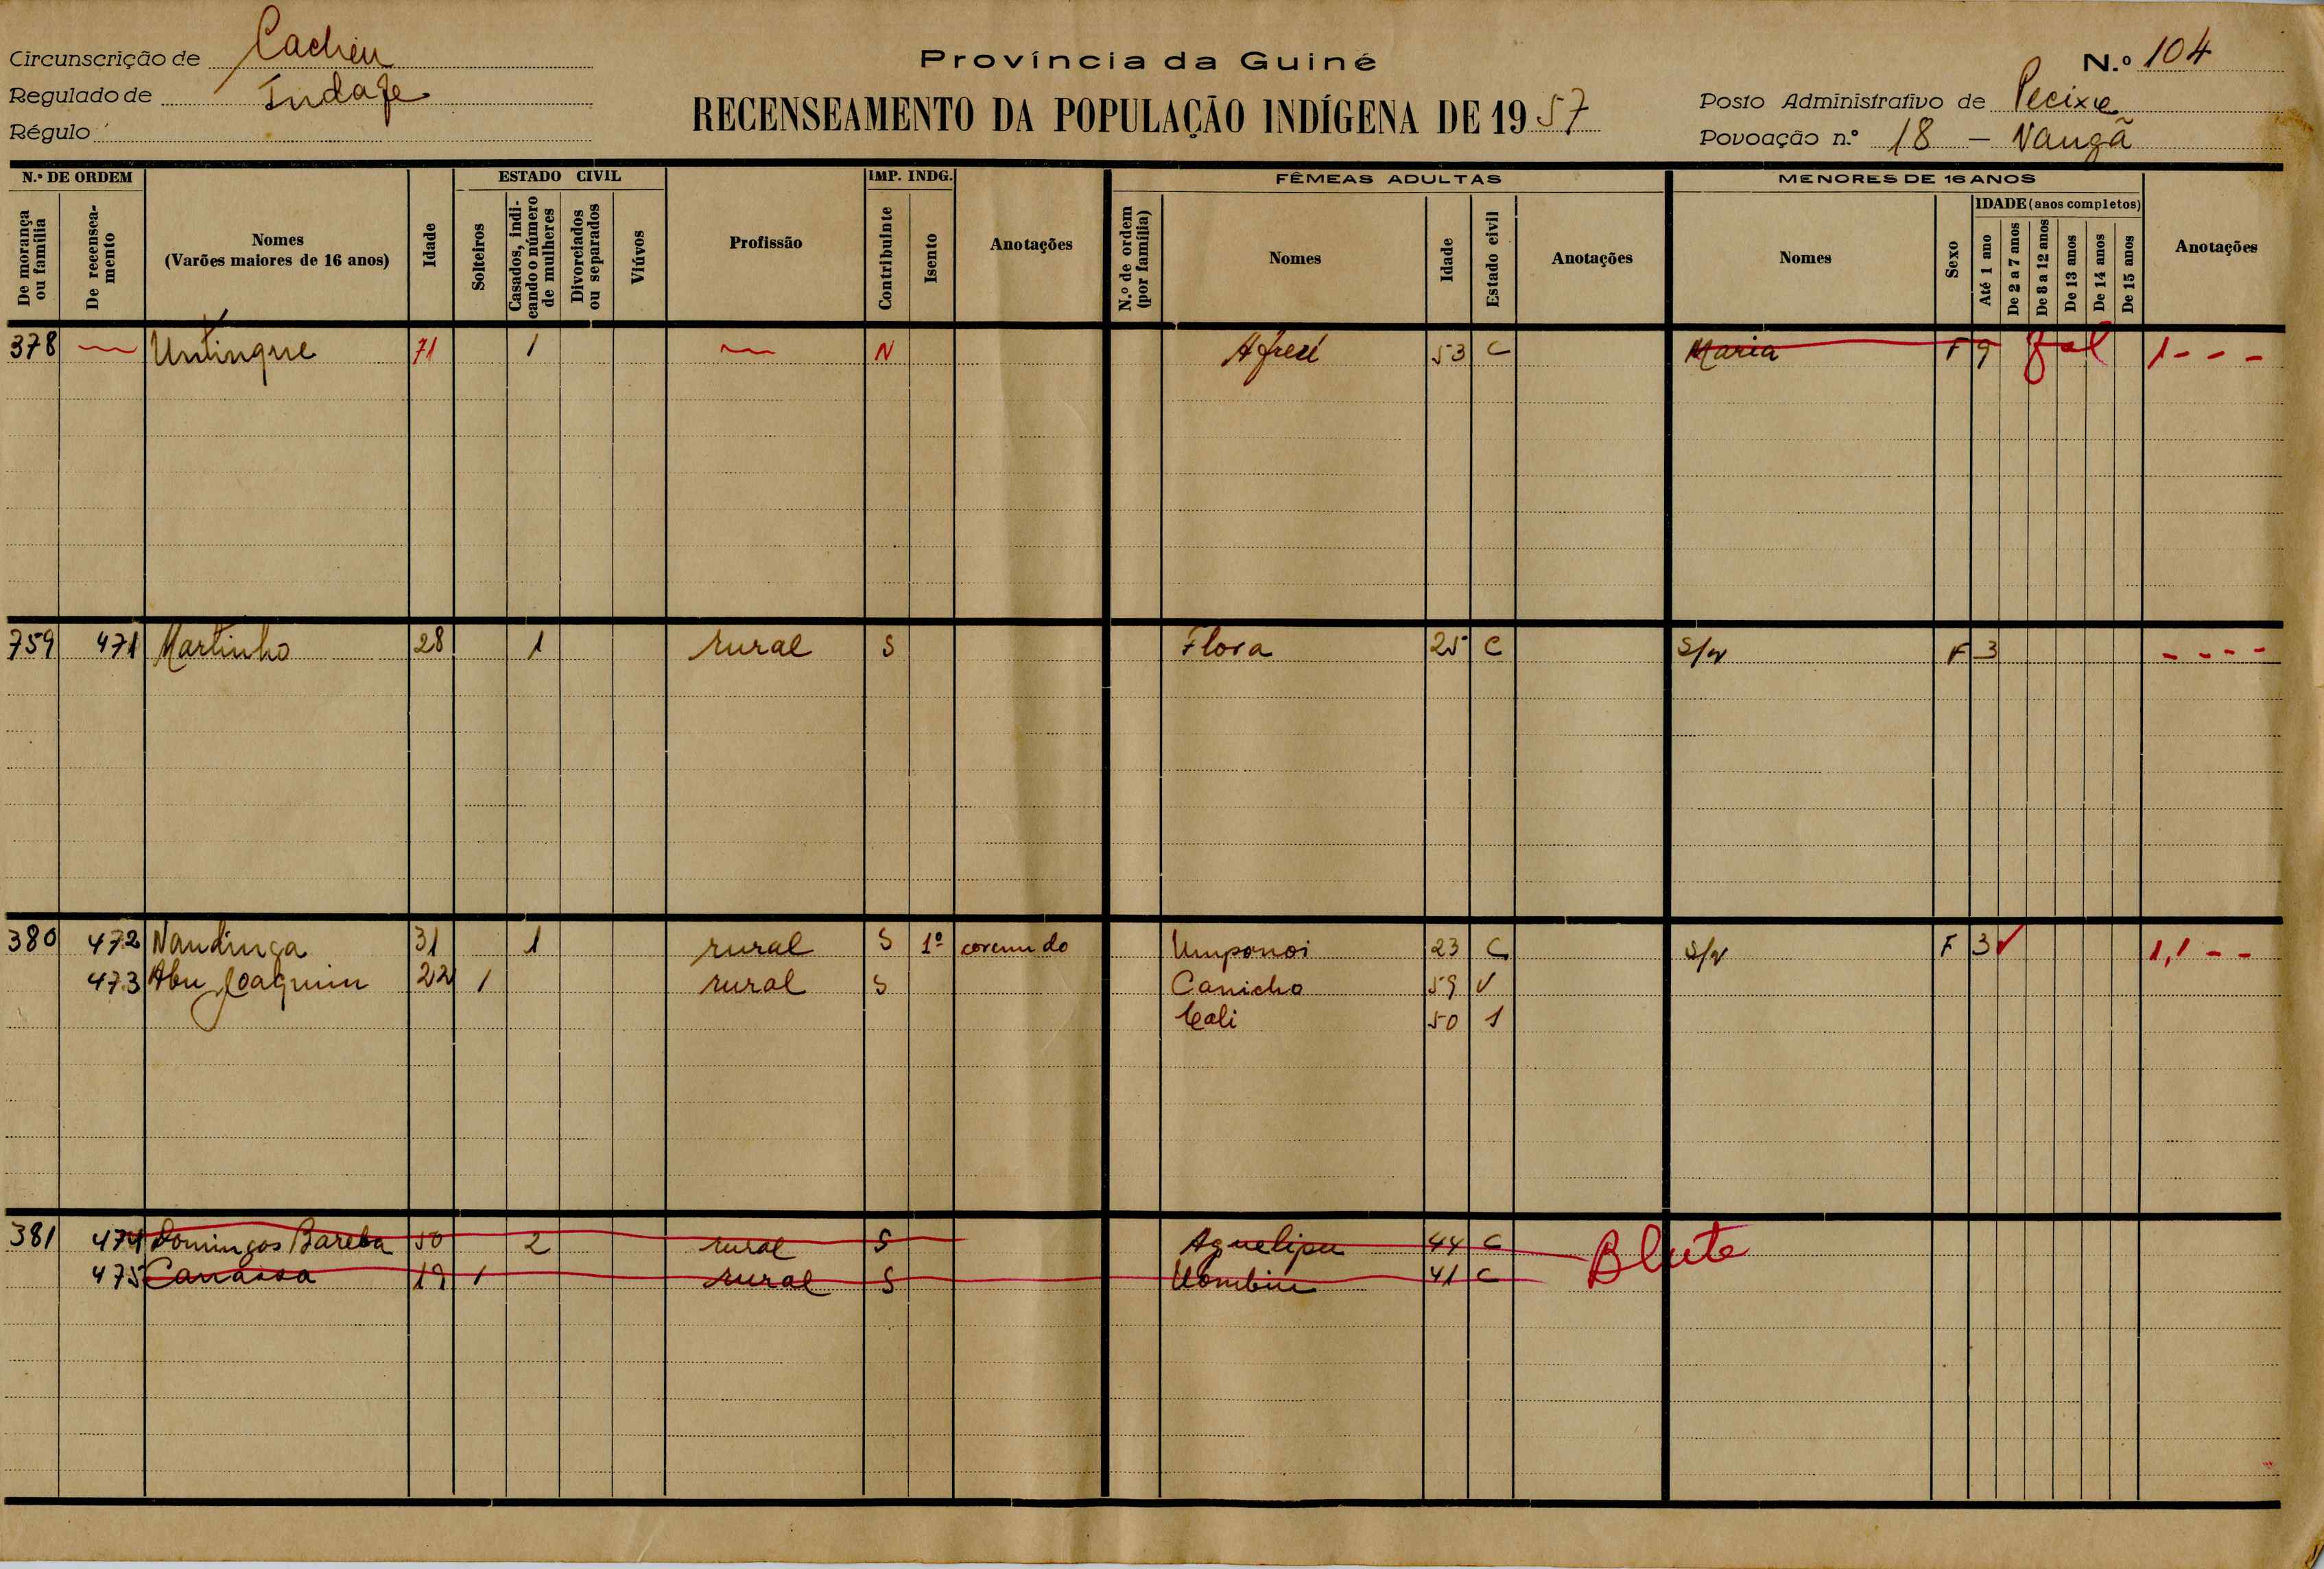 Circunscrição de Cacheu
Regulado de Indafe
Régulo
Província da Guiné
RECENSEAMENTO DA POPULAÇÃO INDÍGENA DE 1957
N.º 104
Posto Administrativo de Pecixe
Povoação n.º 18 — Vangã
N.º DE ORDEM
De morança ou família
De recenseamento
Nomes
(Varões maiores de 16 anos)
Idade
ESTADO CIVIL
Solteiros
Casados, indicando o número de mulheres
Divorciados ou separados
Viúvos
Profissão
IMP. INDG.
Contribuinte
Isento
Anotações
FÊMEAS ADULTAS
N.º de ordem (por família)
Nomes
Idade
Estado civil
Anotações
MENORES DE 16 ANOS
Nomes
Sexo
IDADE (anos completos)
Até 1 ano
De 2 a 7 anos
De 8 a 12 anos
De 13 anos
De 14 anos
De 15 anos
Anotações
378 — Untinque 71 1 — N 53 C Maria F 9 1 - - -
759 471 Martinho 28 1 rural S Flora 25 C S/N F 3 - - - -
380 472 Nandinga 31 1 rural S 1º Umponoi 23 C S/N F 3 1,1 - -
473 Abu Joaquim 22 1 rural S Canicho 59 V
Cali 50 1
381 474 Domingos Bareba 50 2 rural S Aguelipu 44 C Blute
475 Canassa 19 1 rural S Uombiu 41 C